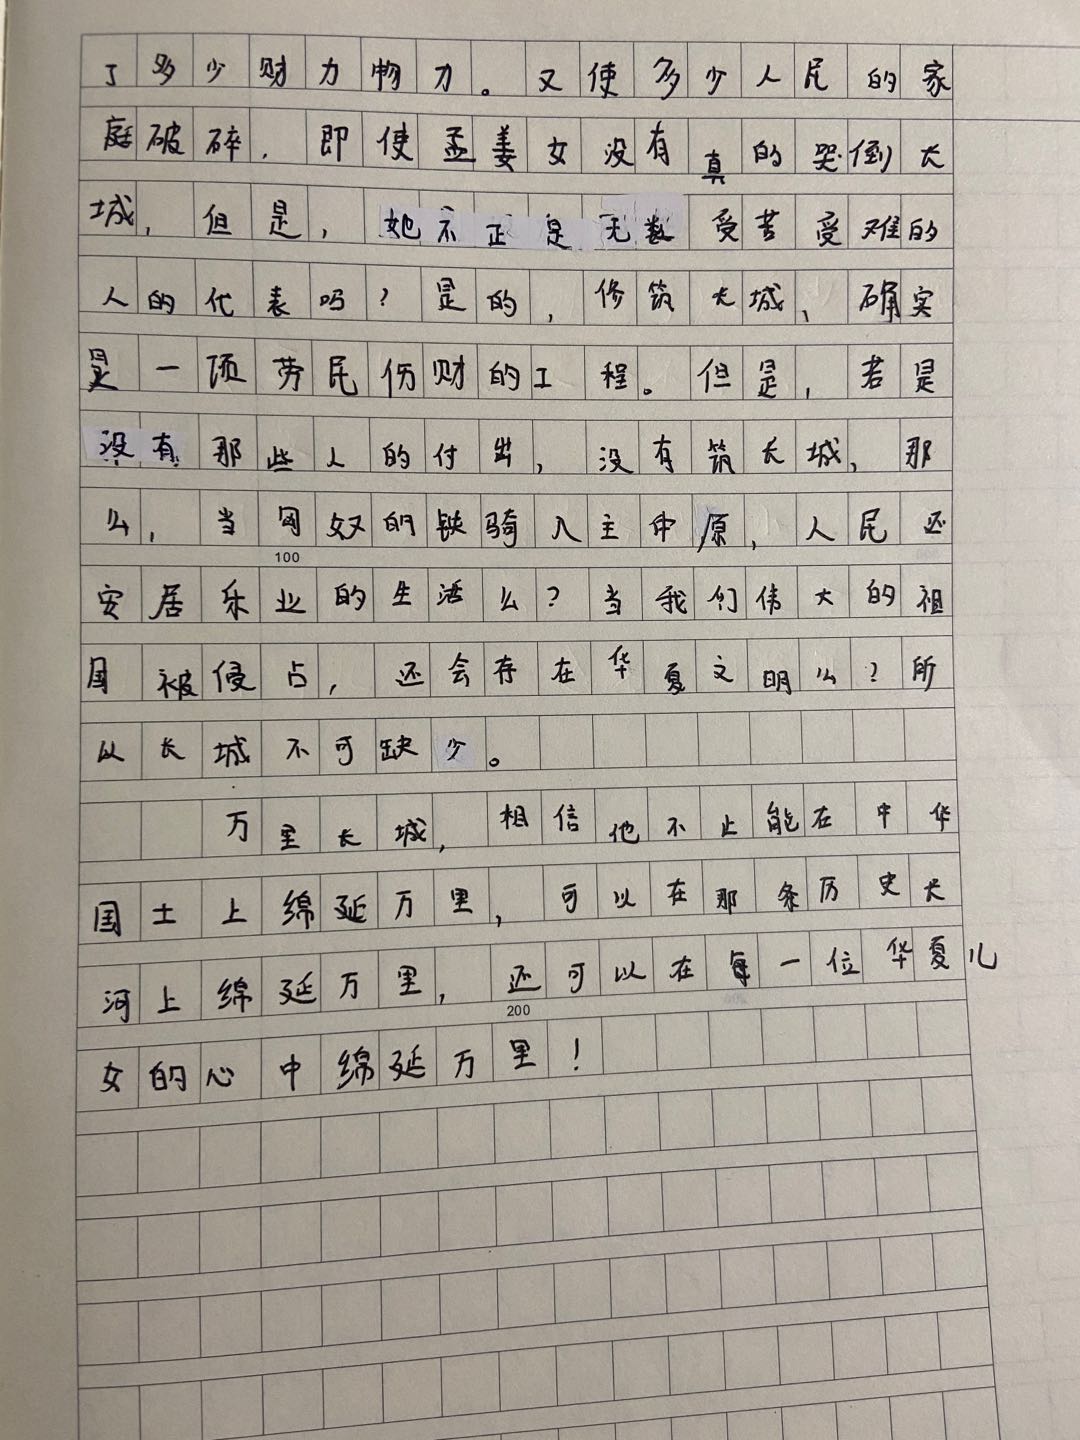 了多少财力物力。又使多少人民的家
庭破碎，即使孟姜女没有真的哭倒长
城，但是，她不正是无数受苦受难的
人的代表吗？是的，修筑长城，确实
是一项劳民伤财的工程。但是，若是
没有那些人的付出，没有筑长城，那
么，当匈奴的铁骑入主中原，人民还
100
安居乐业的生活么？当我们伟大的祖
国被侵占，还会存在华夏文明么？所
以长城不可缺少。
万里长城，相信他不止能在中华
国土上绵延万里，可以在那条历史长
河上绵延万里，还可以在每一位华夏儿
200
女的心中绵延万里！